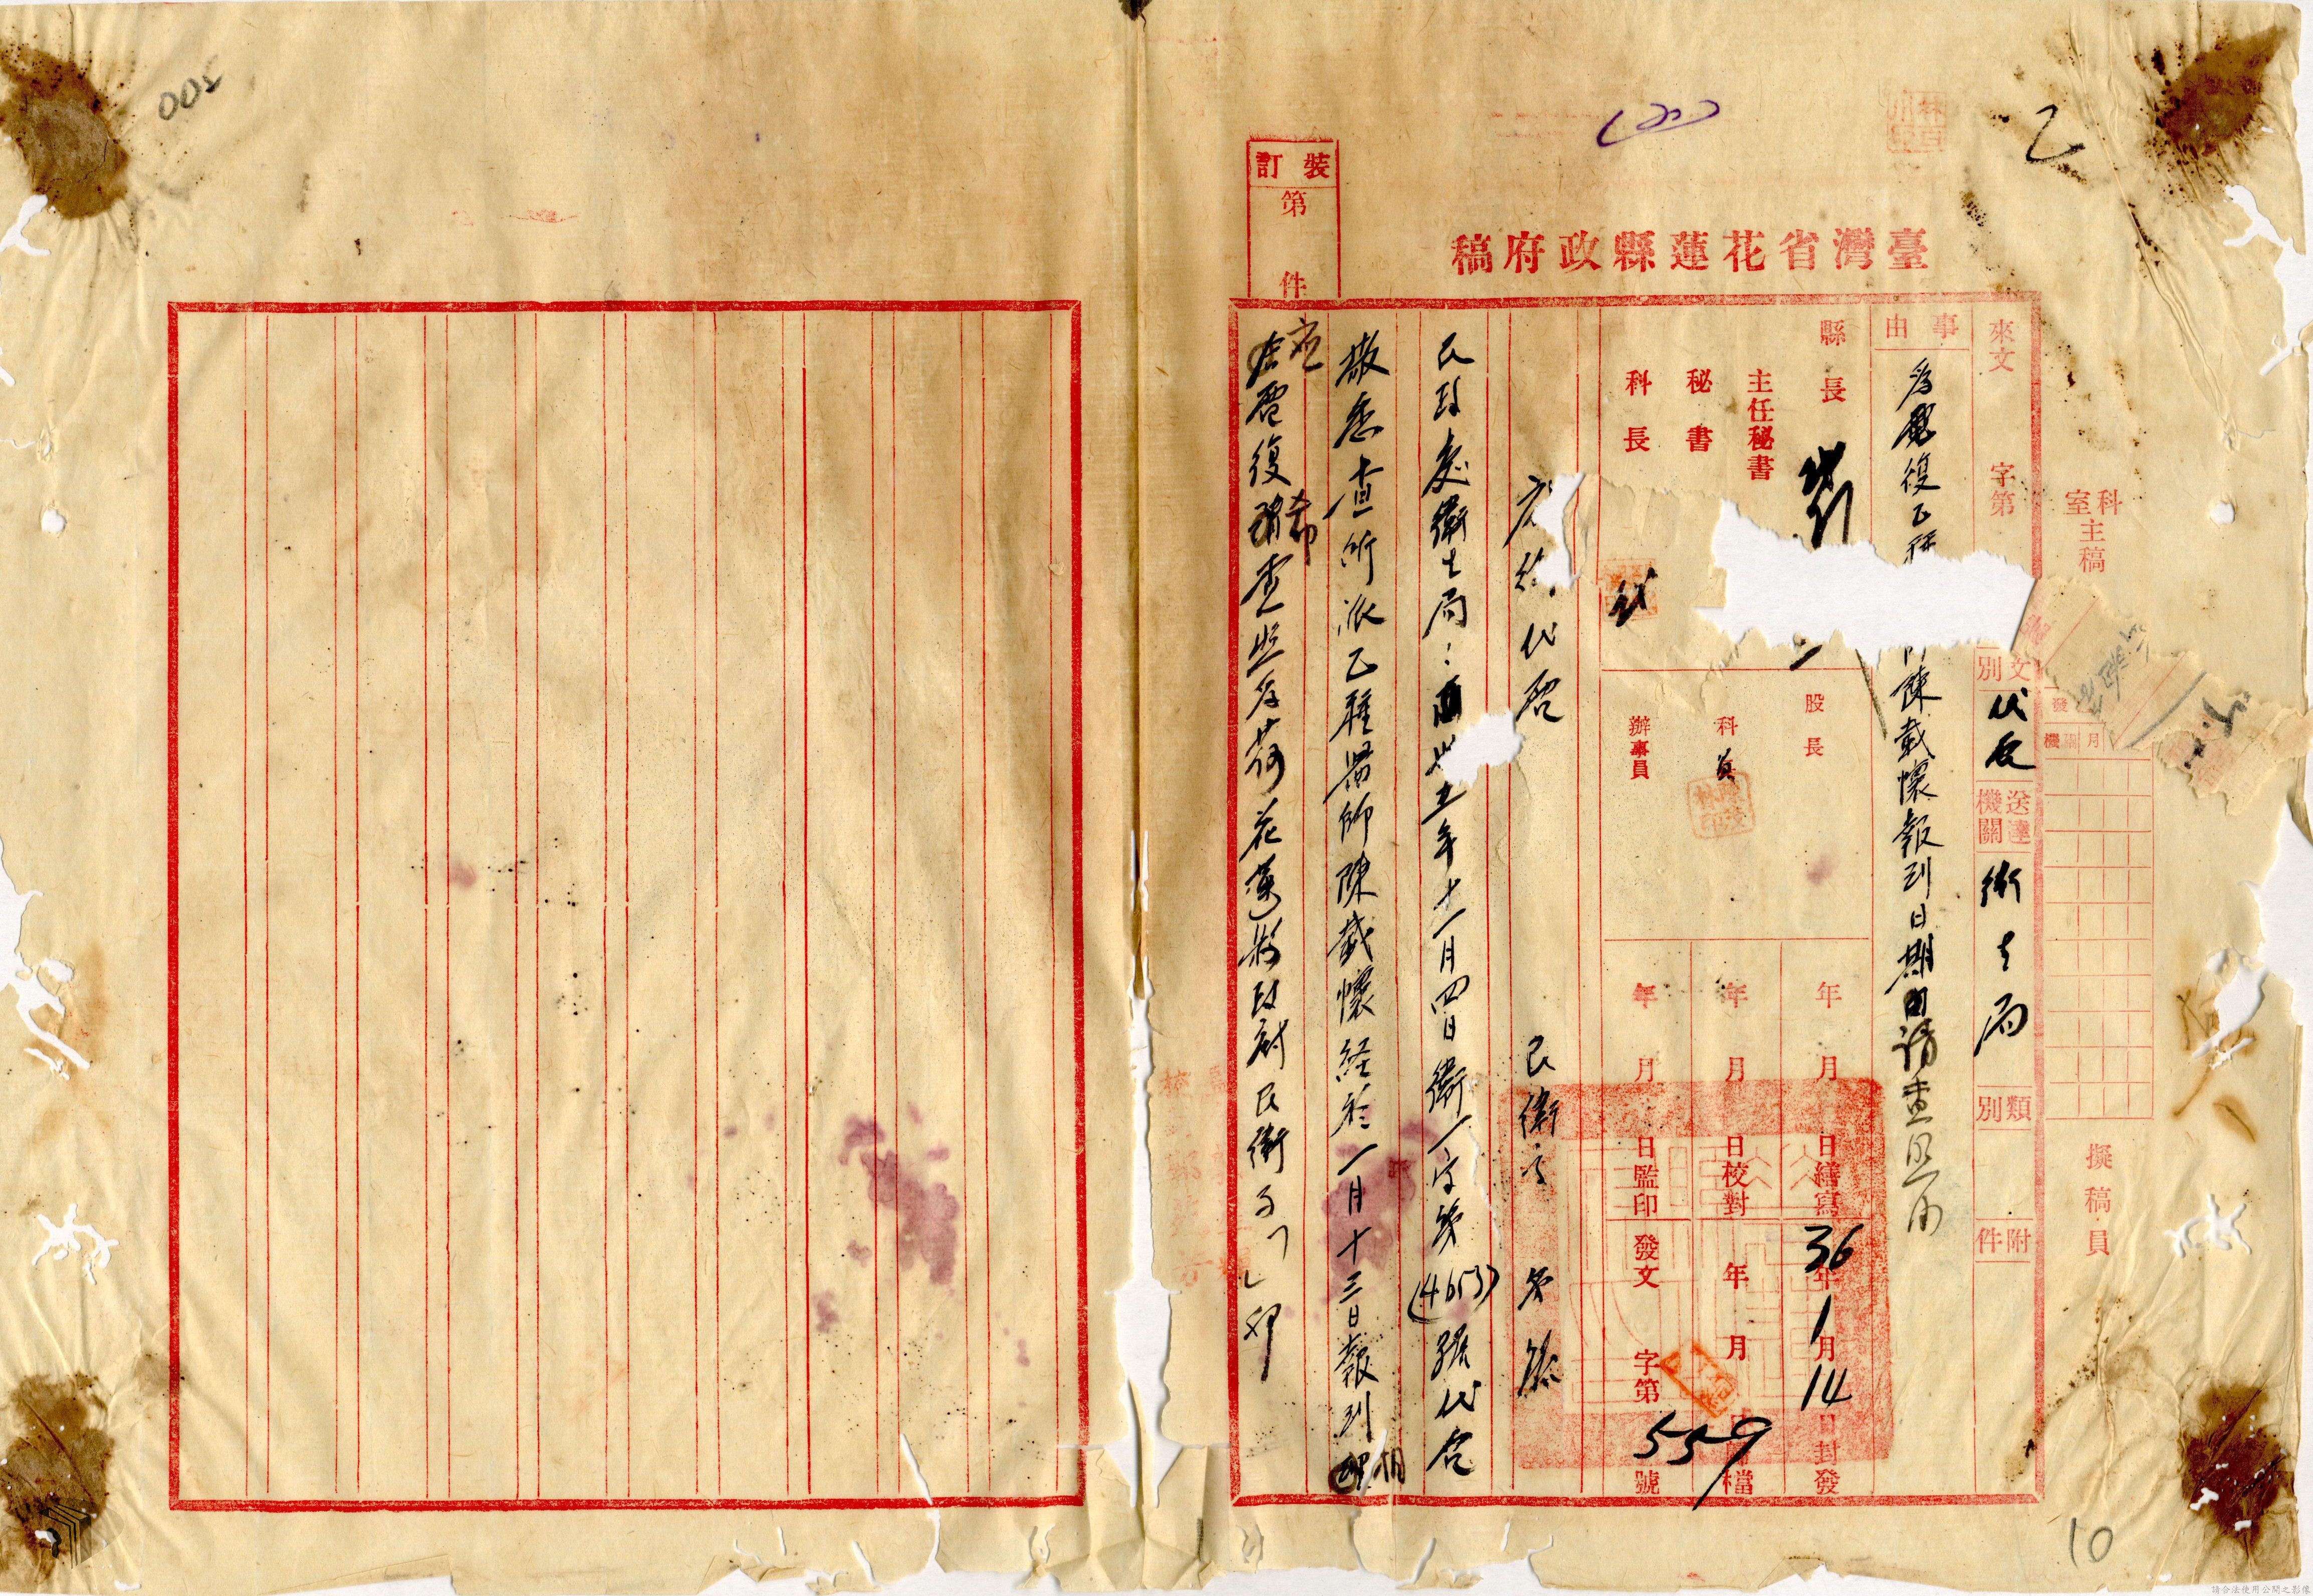 臺灣省花蓮縣政府稿
裝訂
第
件
科室主稿
擬稿員
來文
字第
文別
代
送達機關
衛生局
類別
附件
事由
為
復乙種
陳載懷報到日期由請查照由
縣長
主任秘書
秘書
科長
代
股長
科員
辦事員
年月日繕寫
年月日校對
年月日監印
36年1月14日封發
年月
檔
發文
字第
559
號
代電
民衛
第
號
民政處衛生局:
卅五年十一月四日衛一字第(4653)號代電
敬悉查所派乙種醫師陳載懷經於一月十三日報到
相
應
電復
希
查照為荷花蓮縣政府民衛
印
乙
10
002
發
機關
月
請合法使用公開之影像